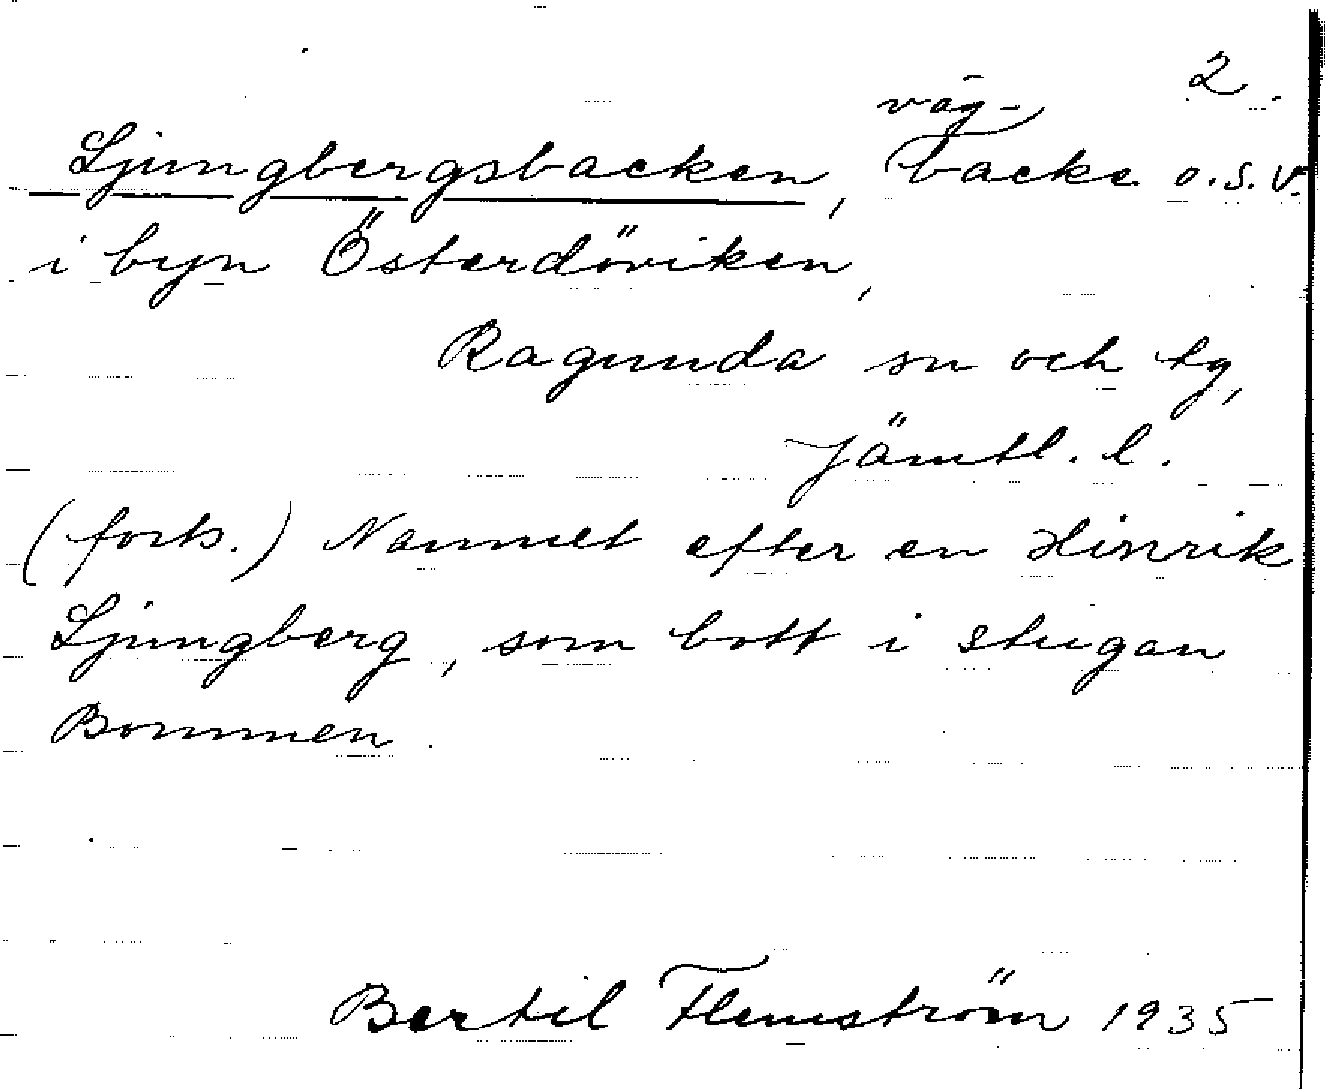 2.
Ljungbergsbacken, vägbacke o.s.v.
i byn Österdöviken,
Ragunda sn och tg,
Jämtl. l.
(forts.) Namnet efter en Hinrik
Ljungberg, som bott i stugan
Bommen.
Bertil Flemström 1935